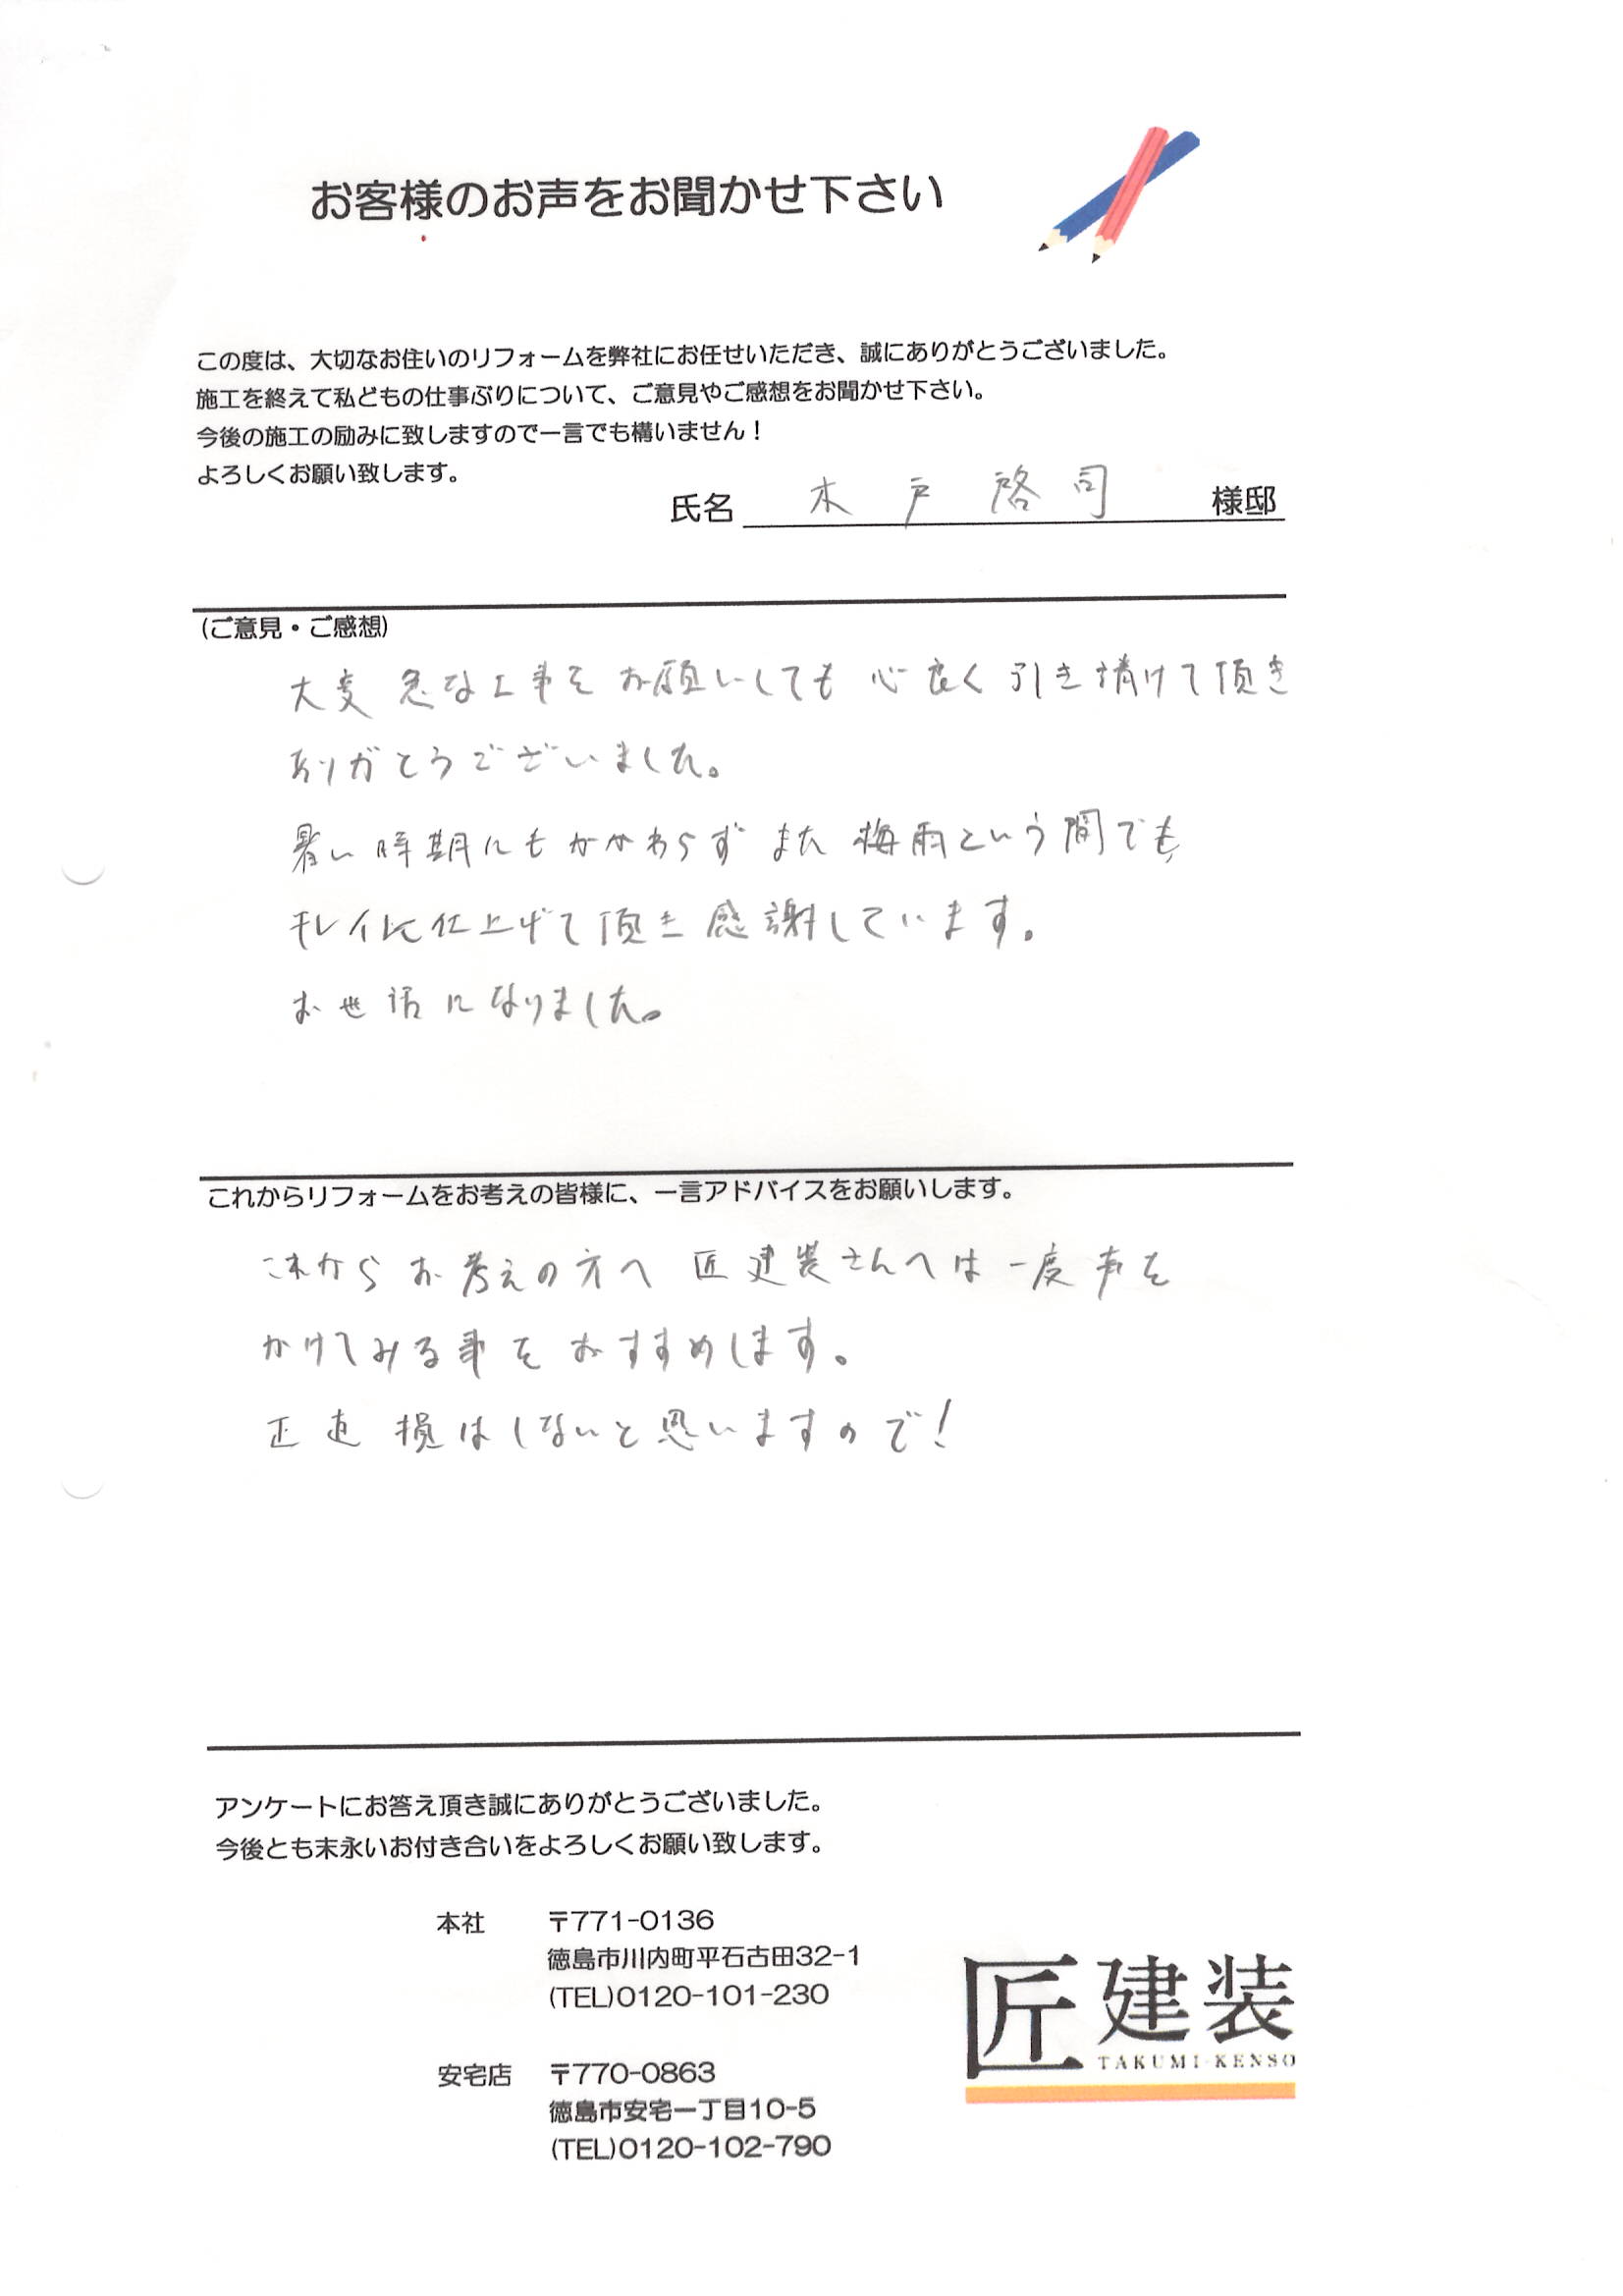 お客様のお声をお聞かせ下さい
この度は、大切なお住いのリフォームを弊社にお任せいただき、誠にありがとうございました。
施工を終えて私どもの仕事ぶりについて、ご意見やご感想をお聞かせ下さい。
今後の施工の励みに致しますので一言でも構いません！
よろしくお願い致します。
氏名 木戸啓司 様邸
(ご意見・ご感想)
大変 急な工事をお願いしても 心良く引き請けて頂き
ありがとうございました。
暑い時期にもかかわらず また 梅雨という間でも
キレイに仕上げて頂き感謝しています。
お世話になりました。
これからリフォームをお考えの皆様に、一言アドバイスをお願いします。
これからお考えの方へ 匠建装さんへは一度声を
かけてみる事をおすすめします。
正直 損はしないと思いますので！
アンケートにお答え頂き誠にありがとうございました。
今後とも末永いお付き合いをよろしくお願い致します。
本社 〒771-0136
徳島市川内町平石古田32-1
(TEL)0120-101-230
匠建装
TAKUMI-KENSO
安宅店 〒770-0863
徳島市安宅一丁目10-5
(TEL)0120-102-790